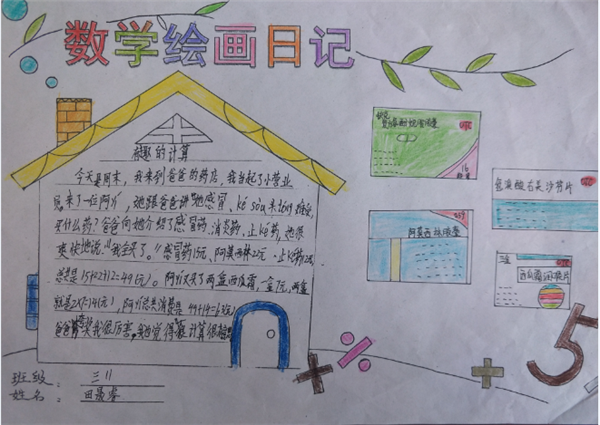 数学绘画日记
有趣的计算
今天是周末，我来到爸爸的药店，我当起了小营业
员来了一位阿姨，她跟爸爸讲她感冒、ké sòu
买什么药？爸爸向她介绍了感冒药、消炎药、止ké药，她很
爽快地说：“我全买了。”感冒药15元，阿莫西林22元，止ké药12元
总共是15+22+12=49(元)。阿姨又买了两盒西瓜霜，一盒7元，两盒
就是2×7=14(元)，阿姨总共消费是49+14=63(元)
爸爸夸奖我很厉害，我也觉得计算很有趣
氨酚烷胺胶囊
阿莫西林胶囊
氢溴酸右美沙芬片
西瓜霜润喉片
班级：三11
姓名：田